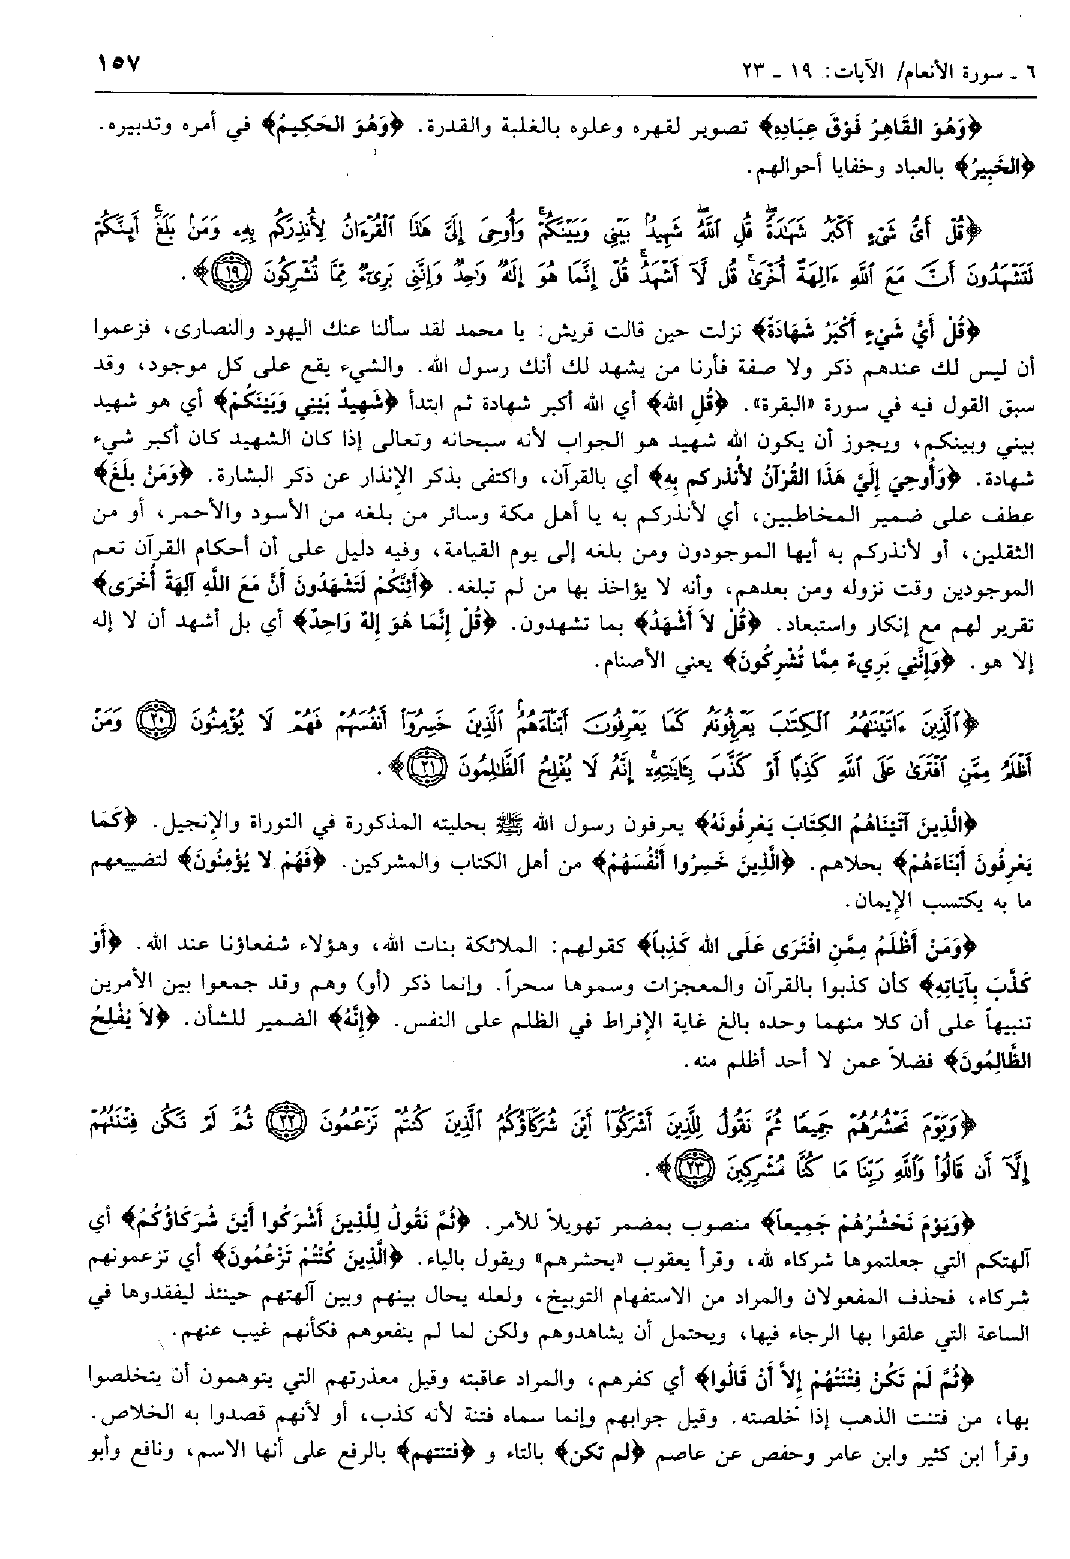 ٦ ـ سورة الأنعام/ الآيات: ١٩ ـ ٢٣
١٥٧
﴿وَهُوَ القَاهِرُ فَوْقَ عِبَادِهِ﴾ تصوير لقهره وعلوه بالغلبة والقدرة. ﴿وَهُوَ الحَكِيمُ﴾ في أمره وتدبيره.
﴿الخَبِيرُ﴾ بالعباد وخفايا أحوالهم.
﴿قُلْ أَىُّ شَىْءٍ أَكْبَرُ شَهَٰدَةً ۖ قُلِ ٱللَّهُ ۖ شَهِيدٌۢ بَيْنِى وَبَيْنَكُمْ ۚ وَأُوحِىَ إِلَىَّ هَٰذَا ٱلْقُرْءَانُ لِأُنذِرَكُم بِهِۦ وَمَنۢ بَلَغَ ۚ أَئِنَّكُمْ
لَتَشْهَدُونَ أَنَّ مَعَ ٱللَّهِ ءَالِهَةً أُخْرَىٰ ۚ قُل لَّآ أَشْهَدُ ۚ قُلْ إِنَّمَا هُوَ إِلَٰهٌ وَٰحِدٌ وَإِنَّنِى بَرِىٓءٌ مِّمَّا تُشْرِكُونَ ﴿١٩﴾﴾.
﴿قُلْ أَيُّ شَيْءٍ أَكْبَرُ شَهَادَةً﴾ نزلت حين قالت قريش: يا محمد لقد سألنا عنك اليهود والنصارى، فزعموا
أن ليس لك عندهم ذكر ولا صفة فأرنا من يشهد لك أنك رسول الله. والشيء يقع على كل موجود، وقد
سبق القول فيه في سورة «البقرة». ﴿قُلِ الله﴾ أي الله أكبر شهادة ثم ابتدأ ﴿شَهِيدٌ بَيْنِي وَبَيْنَكُمْ﴾ أي هو شهيد
بيني وبينكم، ويجوز أن يكون الله شهيد هو الجواب لأنه سبحانه وتعالى إذا كان الشهيد كان أكبر شيء
شهادة. ﴿وَأُوحِيَ إِلَيَّ هَذَا القُرْآنُ لأُنْذِرَكم بِهِ﴾ أي بالقرآن، واكتفى بذكر الإنذار عن ذكر البشارة. ﴿وَمَنْ بَلَغَ﴾
عطف على ضمير المخاطبين، أي لأنذركم به يا أهل مكة وسائر من بلغه من الأسود والأحمر، أو من
الثقلين، أو لأنذركم به أيها الموجودون ومن بلغه إلى يوم القيامة، وفيه دليل على أن أحكام القرآن تعم
الموجودين وقت نزوله ومن بعدهم، وأنه لا يؤاخذ بها من لم تبلغه. ﴿أَئِنَّكُمْ لَتَشْهَدُونَ أَنَّ مَعَ اللَّهِ آلِهَةً أُخْرَى﴾
تقرير لهم مع إنكار واستبعاد. ﴿قُلْ لاَ أَشْهَدُ﴾ بما تشهدون. ﴿قُلْ إِنَّمَا هُوَ إِلهٌ وَاحِدٌ﴾ أي بل أشهد أن لا إله
إلا هو. ﴿وَإِنَّنِي بَرِيءٌ مِمَّا تُشْرِكُونَ﴾ يعني الأصنام.
﴿ٱلَّذِينَ ءَاتَيْنَٰهُمُ ٱلْكِتَٰبَ يَعْرِفُونَهُۥ كَمَا يَعْرِفُونَ أَبْنَآءَهُمُ ۘ ٱلَّذِينَ خَسِرُوٓا۟ أَنفُسَهُمْ فَهُمْ لَا يُؤْمِنُونَ ﴿٢٠﴾ وَمَنْ
أَظْلَمُ مِمَّنِ ٱفْتَرَىٰ عَلَى ٱللَّهِ كَذِبًا أَوْ كَذَّبَ بِـَٔايَٰتِهِۦٓ ۗ إِنَّهُۥ لَا يُفْلِحُ ٱلظَّٰلِمُونَ ﴿٢١﴾﴾.
﴿الَّذِينَ آتَيْنَاهُمُ الكِتَابَ يَعْرِفُونَهُ﴾ يعرفون رسول الله ﷺ بحليته المذكورة في التوراة والإنجيل. ﴿كَمَا
يَعْرِفُونَ أَبْنَاءَهُمْ﴾ بحلاهم. ﴿الَّذِينَ خَسِرُوا أَنْفُسَهُمْ﴾ من أهل الكتاب والمشركين. ﴿فَهُمْ لا يُؤْمِنُونَ﴾ لتضييعهم
ما به يكتسب الإيمان.
﴿وَمَنْ أَظْلَمُ مِمَّنِ افْتَرَى عَلَى الله كَذِباً﴾ كقولهم: الملائكة بنات الله، وهؤلاء شفعاؤنا عند الله. ﴿أَوْ
كَذَّبَ بِآيَاتِهِ﴾ كأن كذبوا بالقرآن والمعجزات وسموها سحراً. وإنما ذكر (أو) وهم وقد جمعوا بين الأمرين
تنبيهاً على أن كلا منهما وحده بالغ غاية الإفراط في الظلم على النفس. ﴿إِنَّهُ﴾ الضمير للشأن. ﴿لاَ يُفْلِحُ
الظَّالِمُونَ﴾ فضلاً عمن لا أحد أظلم منه.
﴿وَيَوْمَ نَحْشُرُهُمْ جَمِيعًا ثُمَّ نَقُولُ لِلَّذِينَ أَشْرَكُوٓا۟ أَيْنَ شُرَكَآؤُكُمُ ٱلَّذِينَ كُنتُمْ تَزْعُمُونَ ﴿٢٢﴾ ثُمَّ لَمْ تَكُن فِتْنَتُهُمْ
إِلَّآ أَن قَالُوا۟ وَٱللَّهِ رَبِّنَا مَا كُنَّا مُشْرِكِينَ ﴿٢٣﴾﴾.
﴿وَيَوْمَ نَحْشُرُهُمْ جَمِيعاً﴾ منصوب بمضمر تهويلاً للأمر. ﴿ثُمَّ نَقُولُ لِلَّذِينَ أَشْرَكُوا أَيْنَ شُرَكَاؤُكُمُ﴾ أي
آلهتكم التي جعلتموها شركاء لله، وقرأ يعقوب «يحشرهم» ويقول بالياء. ﴿الَّذِينَ كُنْتُمْ تَزْعُمُونَ﴾ أي تزعمونهم
شركاء، فحذف المفعولان والمراد من الاستفهام التوبيخ، ولعله يحال بينهم وبين آلهتهم حينئذ ليفقدوها في
الساعة التي علقوا بها الرجاء فيها، ويحتمل أن يشاهدوهم ولكن لما لم ينفعوهم فكأنهم غيب عنهم.
﴿ثُمَّ لَمْ تَكُنْ فِتْنَتُهُمْ إِلاَّ أَنْ قَالُوا﴾ أي كفرهم، والمراد عاقبته وقيل معذرتهم التي يتوهمون أن يتخلصوا
بها، من فتنت الذهب إذا خلصته. وقيل جوابهم وإنما سماه فتنة لأنه كذب، أو لأنهم قصدوا به الخلاص.
وقرأ ابن كثير وابن عامر وحفص عن عاصم ﴿لم تكن﴾ بالتاء و ﴿فتنتهم﴾ بالرفع على أنها الاسم، ونافع وأبو